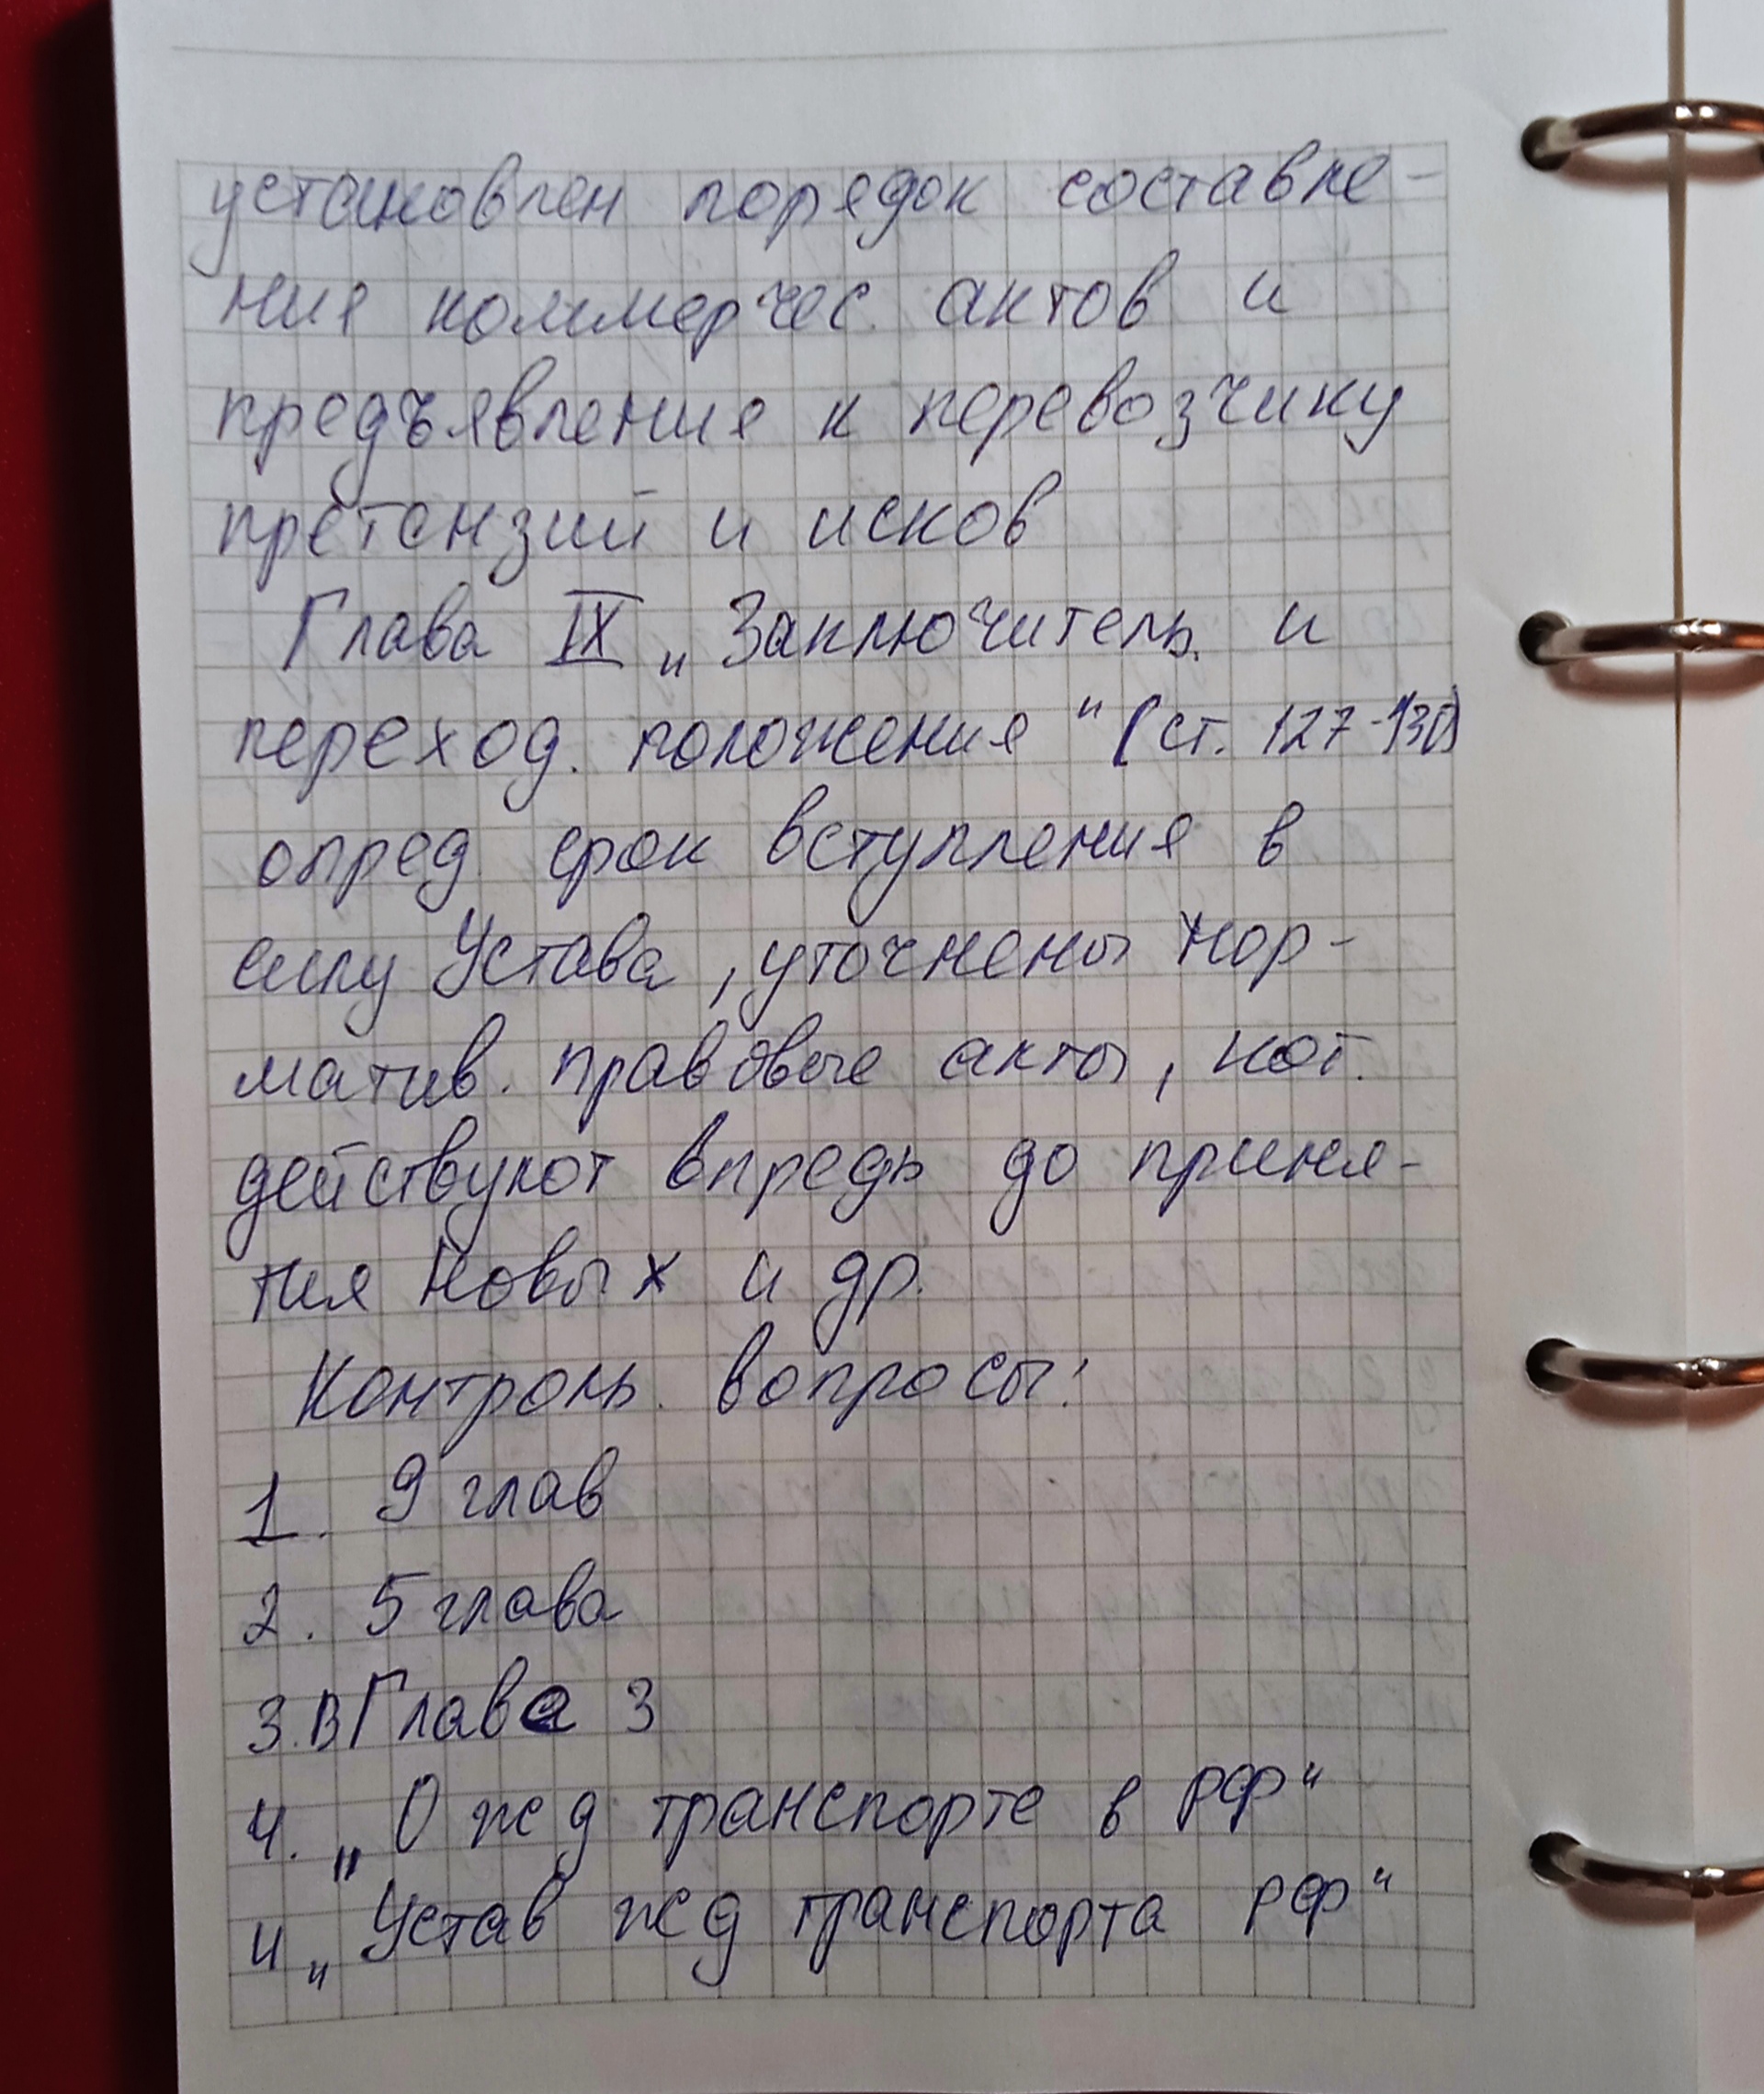 установлен порядок составле-
ния коммерчес. актов и
предъявления к перевозчику
претензий и исков
Глава IX „Заключитель. и
переход. положения" (ст. 127-130)
опред. срок вступления в
силу Устава, уточнены нор-
матив. правовые акты, кот.
действуют впредь до приня-
тия новых и др.
Контроль. вопросы:
1. 9 глав
2. 5 глава
3. В Главе 3
4. „О жд транспорте в РФ"
и „Устав жд транспорта РФ"